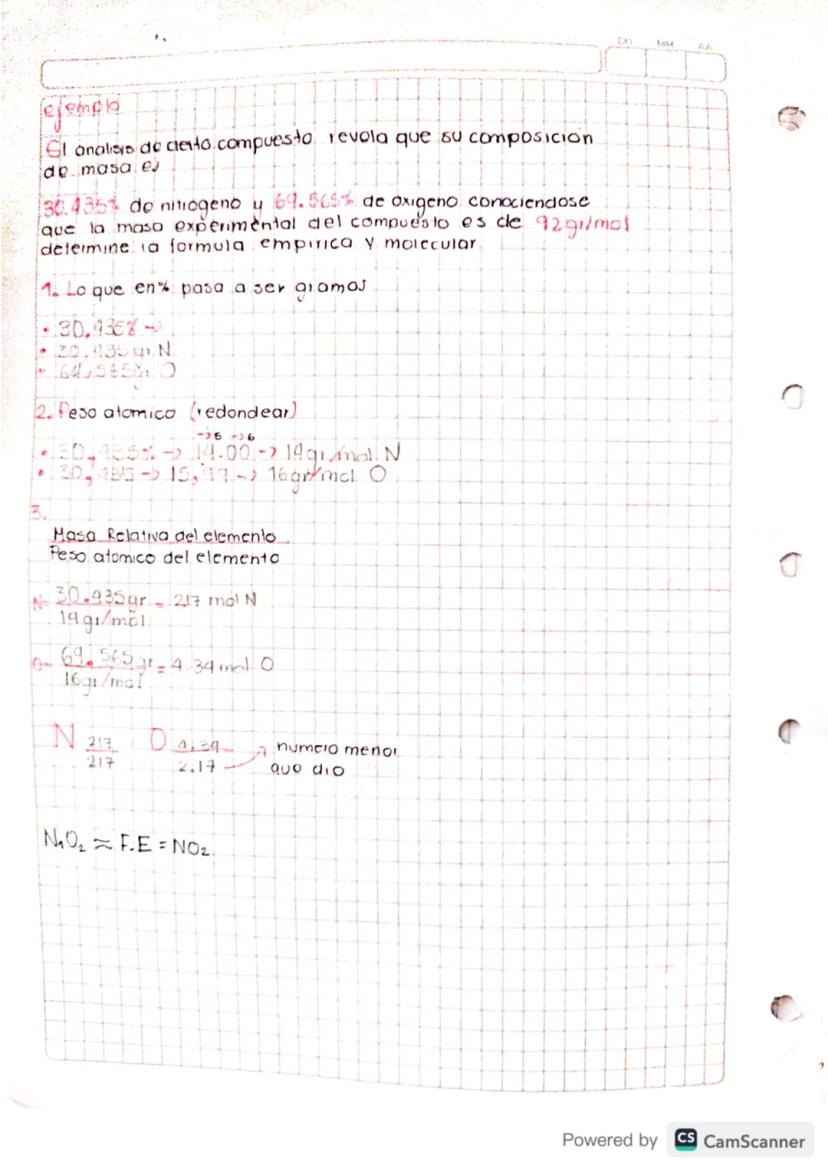 DD MM AA
ejemplo
El analisis de cierto compuesto revela que su composicion
de masa es
30.435% de nitrogeno y 69.565% de oxigeno conociendose
que la masa experimental del compuesto es de 92gr/mol
determine la formula empirica y molecular
1. Lo que en % pasa a ser gramos
• 30.435% →
• 30.435 gr N
• 69.565gr O
2. Peso atomico (redondear)
→5 →6
• 30,435% → 14.00 → 14gr/mol N
• → 15,99 → 16gr/mol O
3.
Masa Relativa del elemento
Peso atomico del elemento
N= 30.435gr = 217 mol N
14gr/mol
O= 69.565gr = 4.34 mol O
16gr/mol
N 217 O 4,34 numero menor
217 2.17 → que dio
N₁O₂ ≈ F.E = NO₂
Powered by CS CamScanner